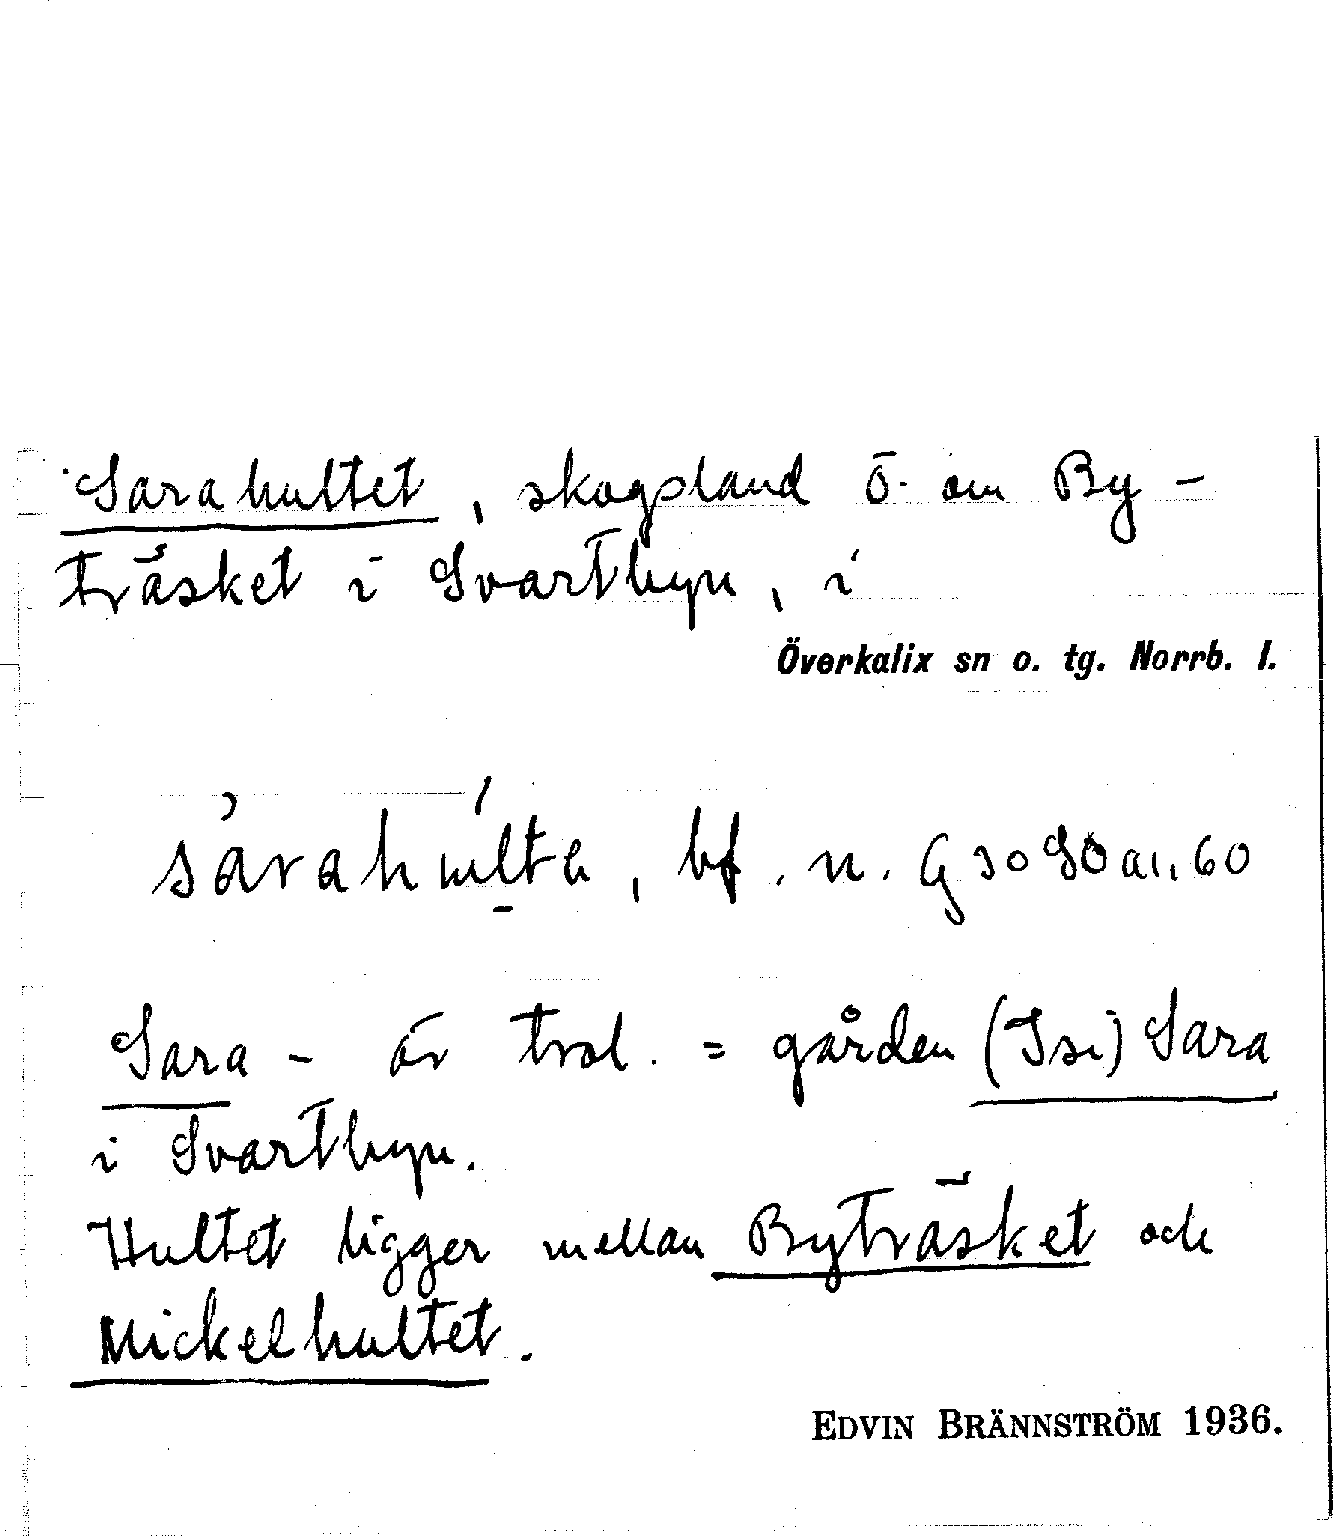 Sarahultet, skogsland ö. om By-
träsket i Svartbyn, i
Överkalix sn o. tg. Norrb. l.
bf. n.
Sara- är trol. = gården (Isi) Sara
i Svartbyn.
Hultet ligger mellan Byträsket och
Mickelhultet.
EDVIN BRÄNNSTRÖM 1936.